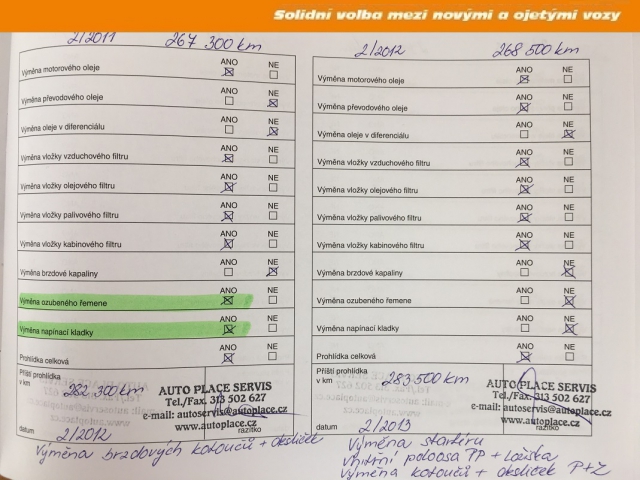 Solidní volba mezi novými a ojetými vozy
2/2011 267 300 km
ANO NE
Výměna motorového oleje
ANO NE
Výměna převodového oleje
ANO NE
Výměna oleje v diferenciálu
ANO NE
Výměna vložky vzduchového filtru
ANO NE
Výměna vložky olejového filtru
ANO NE
Výměna vložky palivového filtru
ANO NE
Výměna vložky kabinového filtru
ANO NE
Výměna brzdové kapaliny
ANO NE
Výměna ozubeného řemene
ANO NE
Výměna napínací kladky
ANO NE
Prohlídka celková
Příští prohlídka
v km 282 300 km
AUTO PLACE SERVIS
Tel./Fax. 313 502 627
e-mail: autoservis@autoplace.cz
www.autoplace.cz
datum 2/2012 razítko
Výměna brzdových kotoučů + destiček
2/2012 268 500 km
ANO NE
Výměna motorového oleje
ANO NE
Výměna převodového oleje
ANO NE
Výměna oleje v diferenciálu
ANO NE
Výměna vložky vzduchového filtru
ANO NE
Výměna vložky olejového filtru
ANO NE
Výměna vložky palivového filtru
ANO NE
Výměna vložky kabinového filtru
ANO NE
Výměna brzdové kapaliny
ANO NE
Výměna ozubeného řemene
ANO NE
Výměna napínací kladky
ANO NE
Prohlídka celková
Příští prohlídka
v km 283 500 km
AUTO PLACE SERVIS
Tel./Fax. 313 502 627
e-mail: autoservis@autoplace.cz
www.autoplace.cz
datum 2/2013 razítko
Výměna startéru
Vnitřní poloosa PP + Ložiska
Výměna kotoučů + destiček P+Z